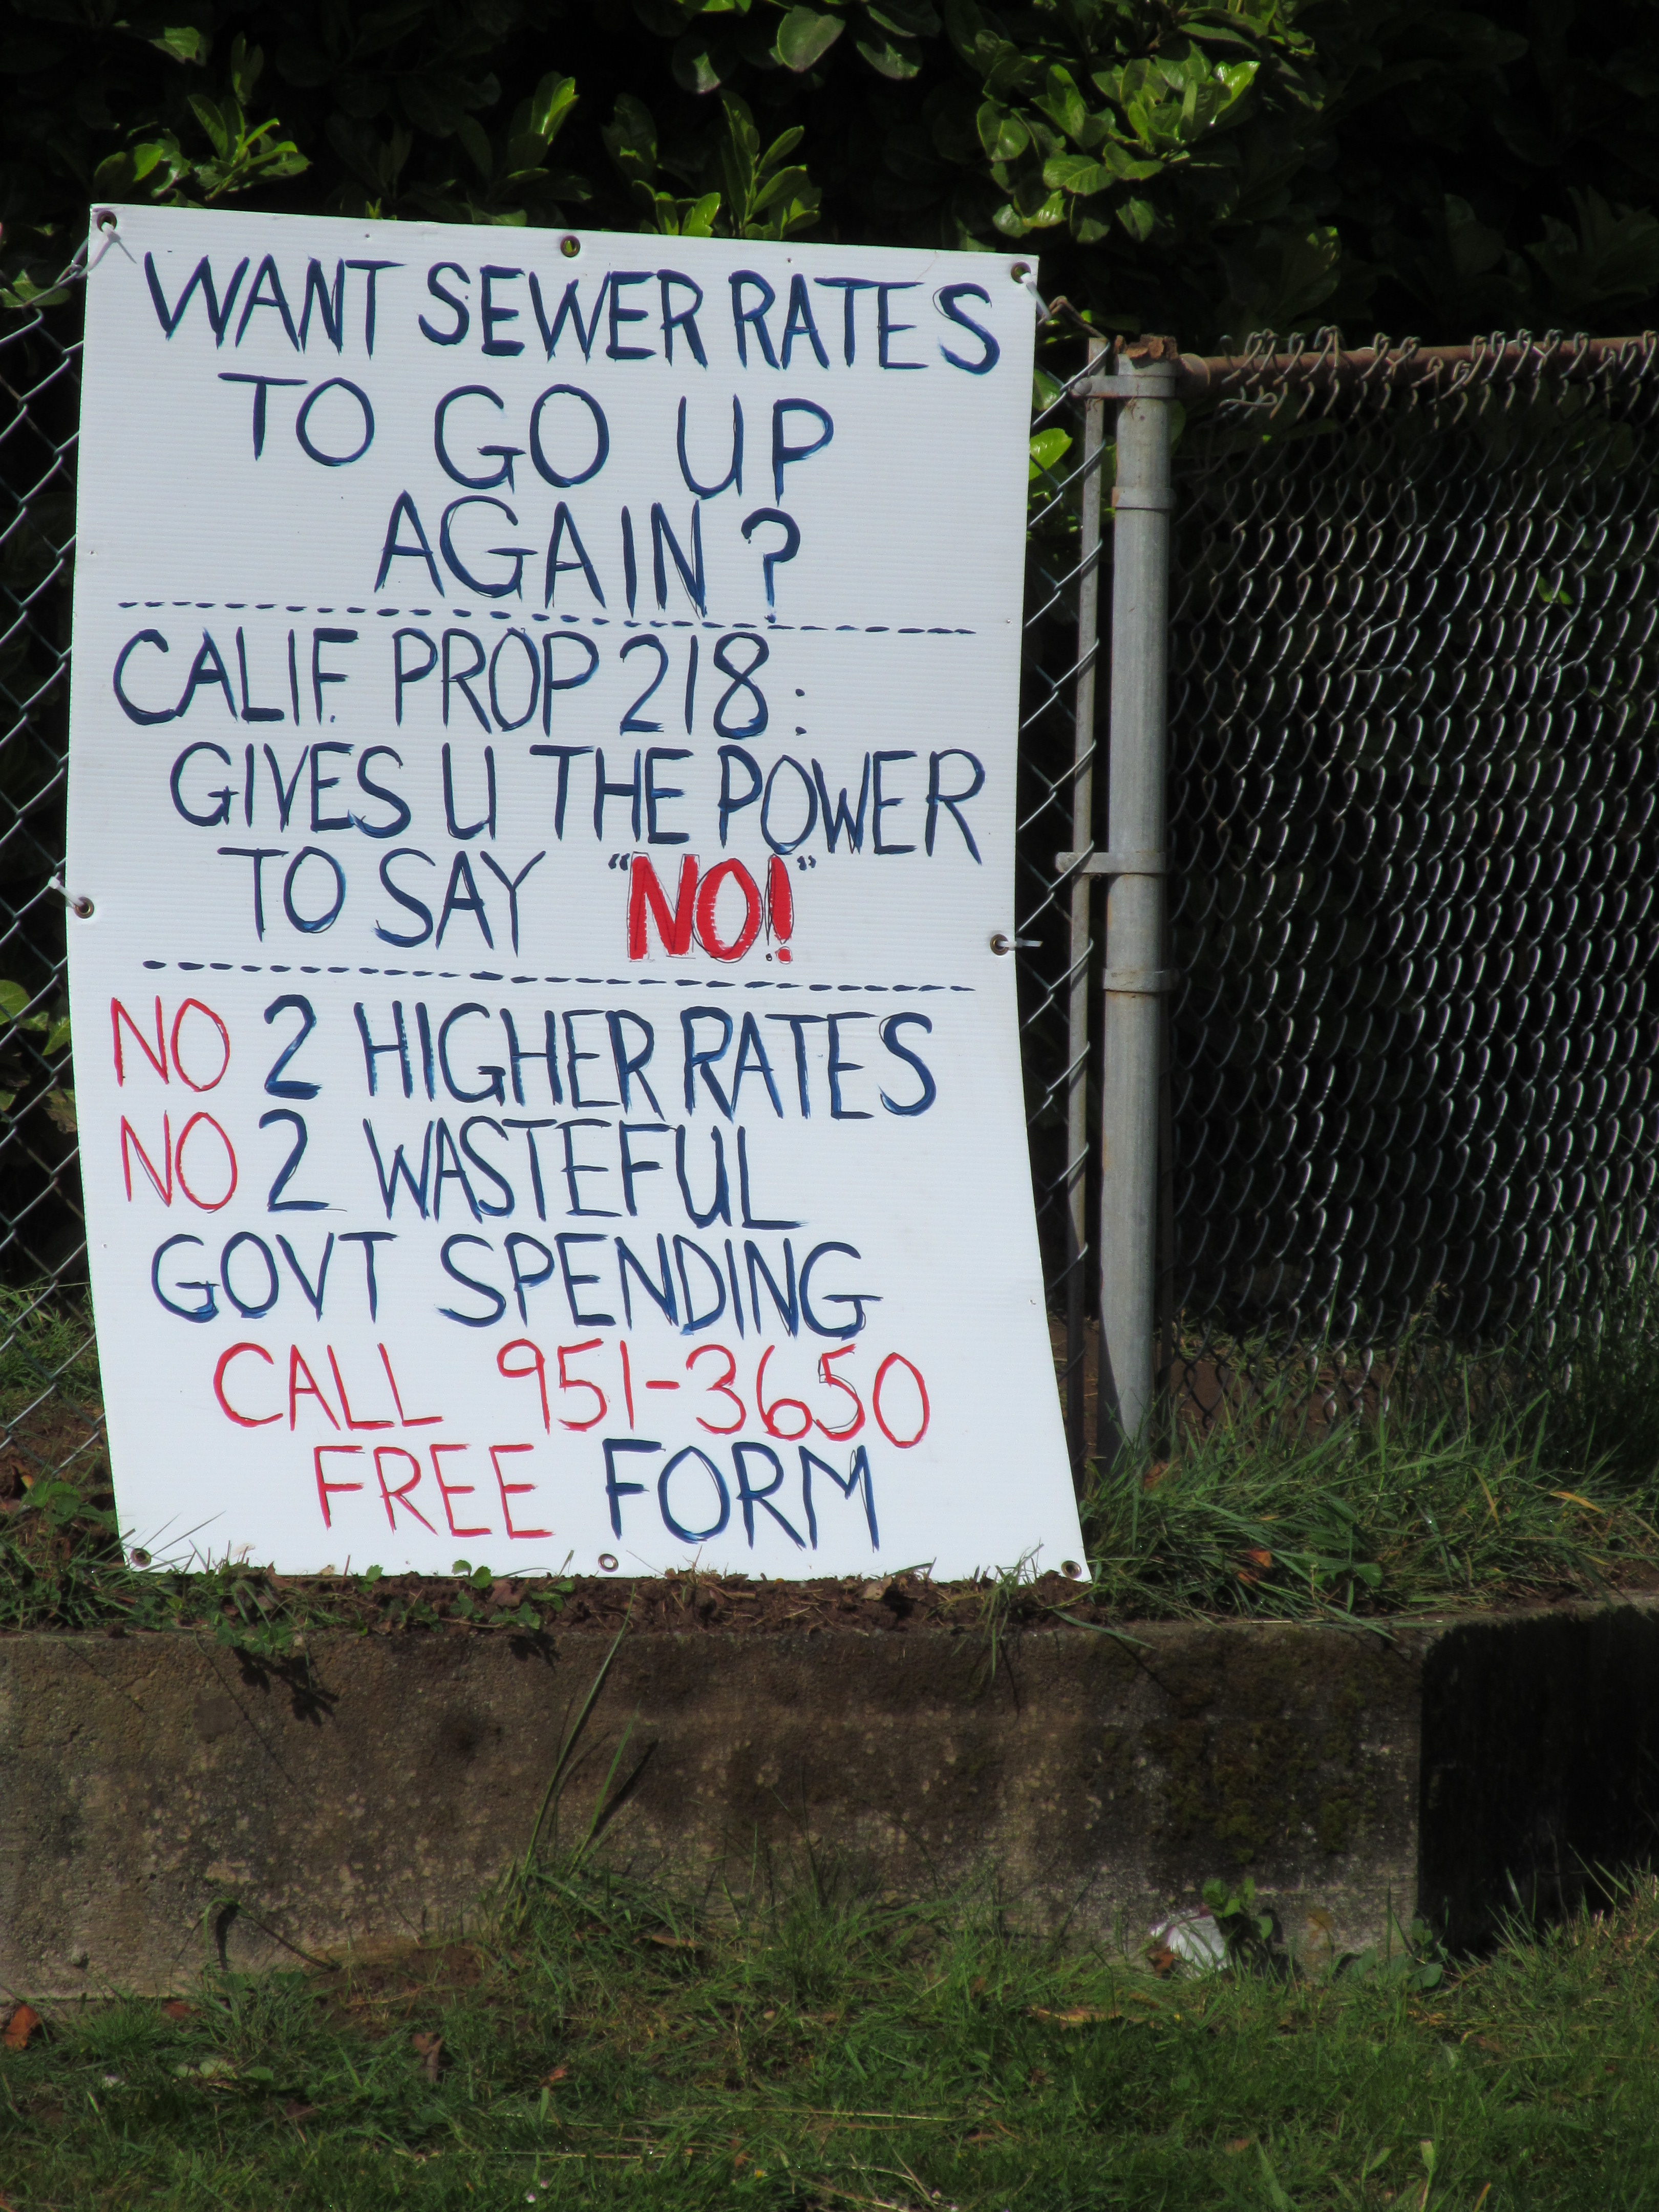 WANT SEWER RATES
TO GO UP
AGAIN?
CALIF. PROP 218:
GIVES U THE POWER
TO SAY "NO!"
NO 2 HIGHER RATES
NO 2 WASTEFUL
GOVT SPENDING
CALL 951-3650
FREE FORM